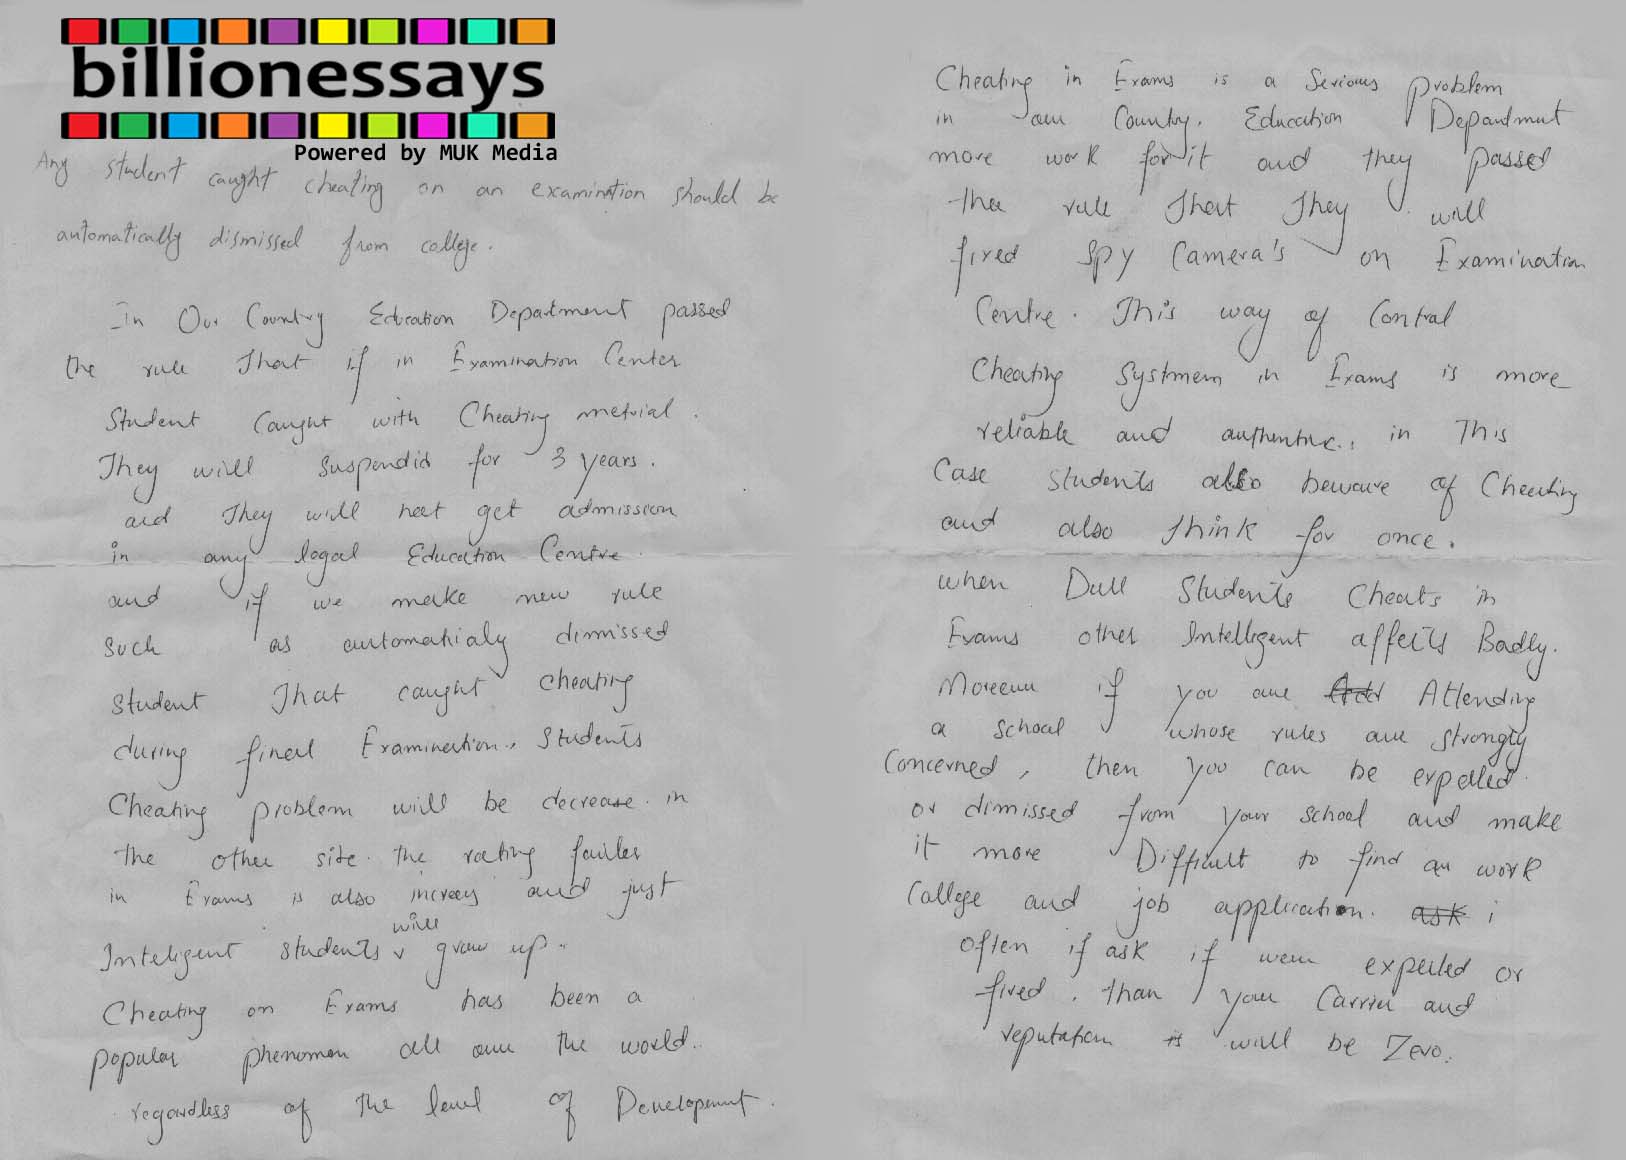 billionessays
Powered by MUK Media
Any student caught cheating on an examination should be
automatically dismissed from college.
In Our Country Education Department passed
the rule That if in Examination Center
Student Caught with Cheating metrial.
They will suspendid for 3 years.
and They will not get admission
in any legal Education Centre.
and if we make new rule
such as automaticaly dimissed
student That caught cheating
during final Examination, students
Cheating problem will be decrease. in
the other site. the rating failer
in Exams is also increes and just
Inteligent students will grow up..
Cheating on Exams has been a
popular phenomen all over the world..
regardless of the level of Development.
Cheating in Exams is a Serious problem
in our Country. Education Department
more work for it and they passed
the rule That They will
fixed spy Camera's on Examination
Centre. This way of Control
Cheating Systmem in Exams is more
reliable and authentic., in This
Case students also beware of Cheating
and also Think for once.
when Dull Students Cheats in
Exams other Intelligent affects Badly.
Moreover if you are Attending
a school whose rules are strongly
Concerned, then you can be expelled
or dimissed from your school and make
it more Difficult to find an work
College and job application. ask i
often if ask if were expelled or
fired. than your Carrier and
reputation is will be Zero.